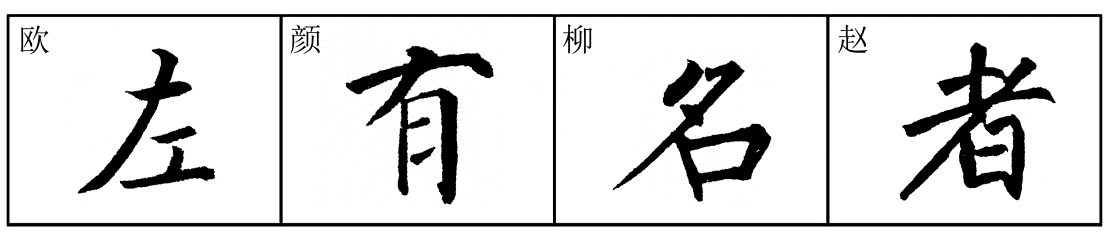 欧 左 颜 有 柳 名 赵 者